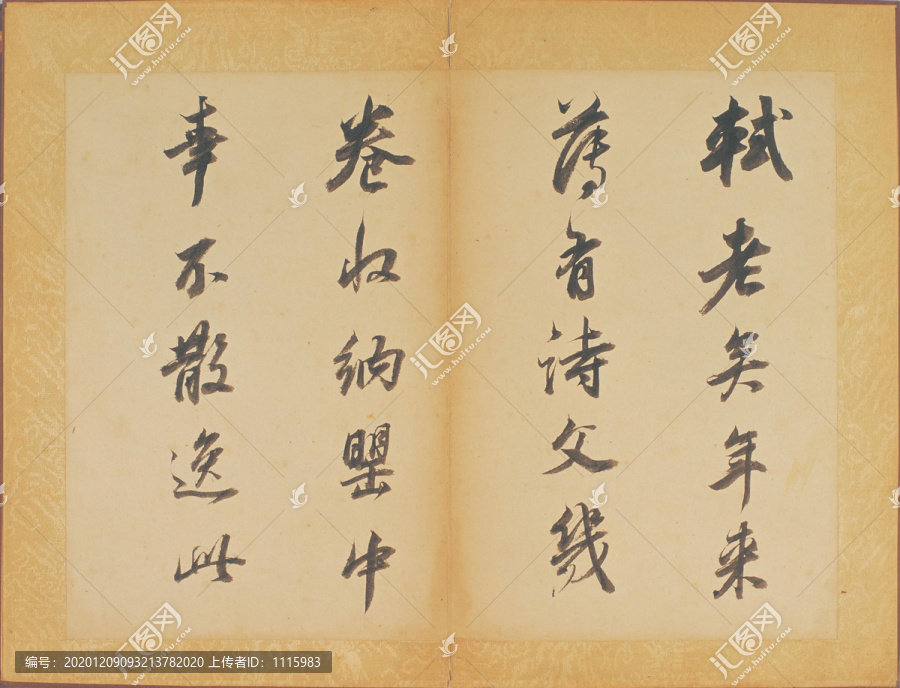 軾老矣年來
薄有詩文幾
卷收納罌中
幸不散逸此
汇图网
www.huitu.com
编号：20201209093213782020 上传者ID：1115983